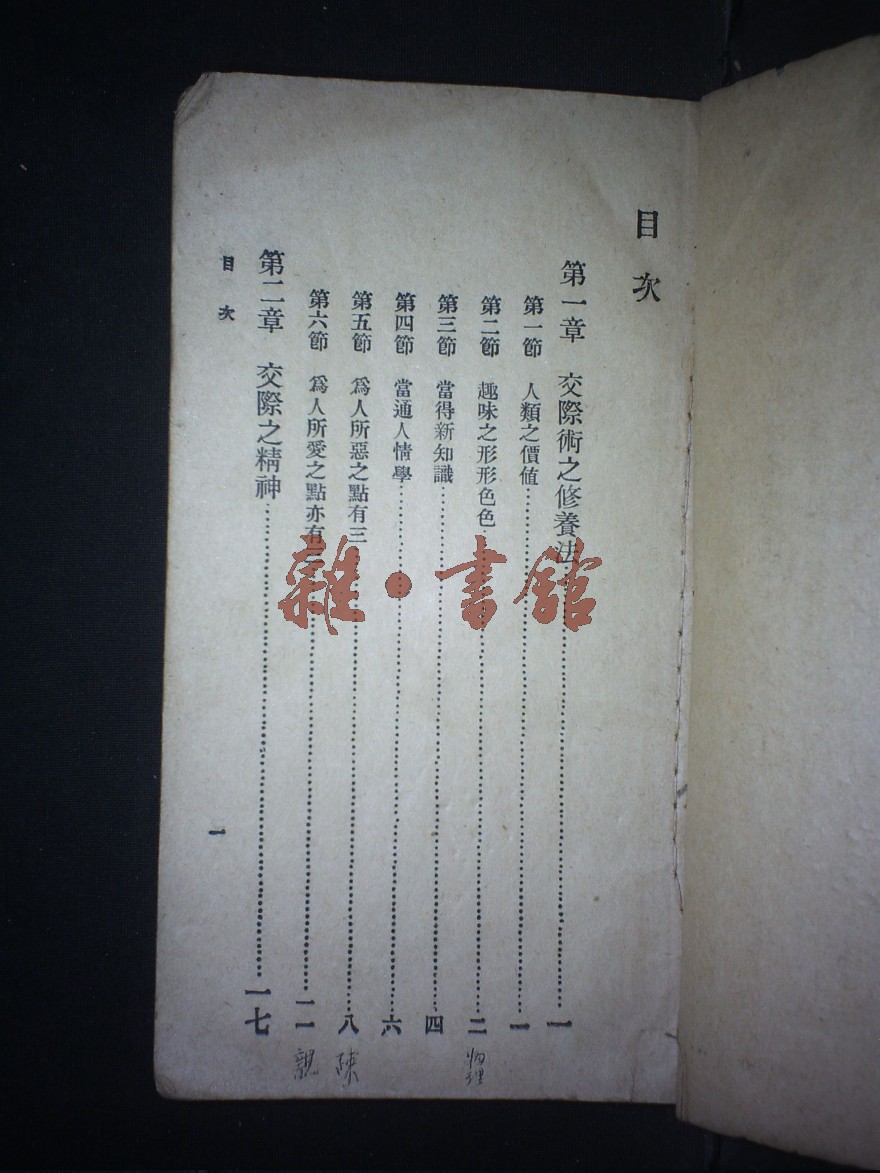 目次
第一章 交際術之修養法……一
第一節 人類之價值……一
第二節 趣味之形形色色……二
第三節 當得新知識……四
第四節 當通人情學……六
第五節 爲人所惡之點有三……八
第六節 爲人所愛之點亦有……一一
第二章 交際之精神……一七
目次
一
物理
疎
親
雜·書館